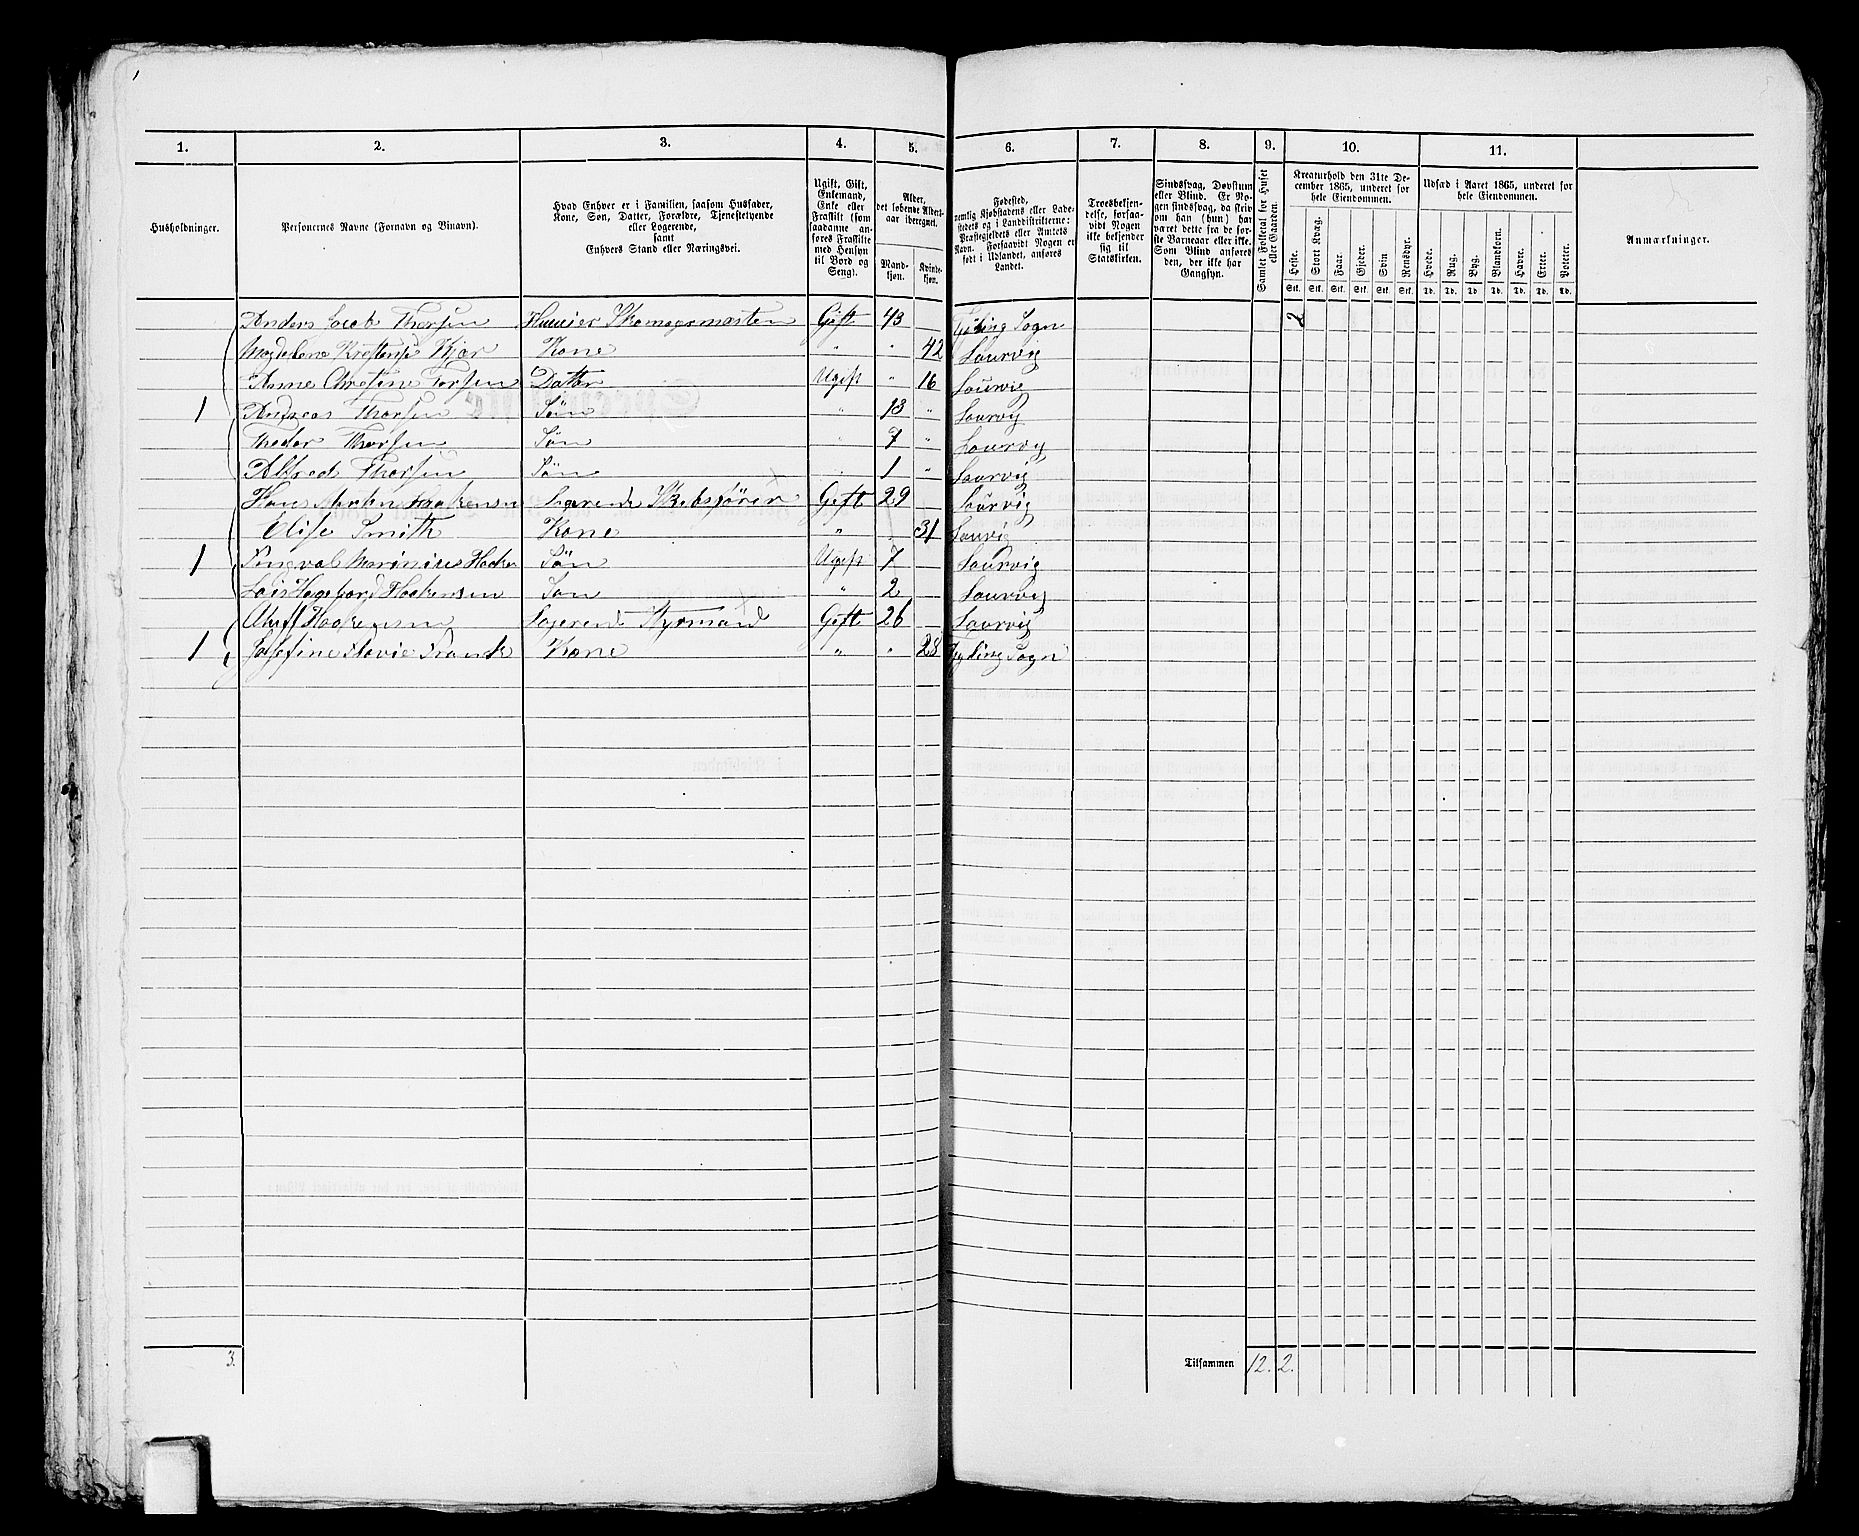 1. 2. 3. 4. 5. 6. 7. 8. 9. 10. 11.
Husholdninger.
Personernes Navne (Fornavn og Binavn).
Hvad Enhver er i Familien, saasom Husfader,
Kone, Søn, Datter, Forældre, Tjenestetyende
eller Logerende,
samt
Enhvers Stand eller Næringsvei.
Ugift, Gift,
Enkemand,
Enke eller
Fraskilt (som
saadanne an-
føres Fraskilte
med Hensyn
til Bord og
Seng).
Alder,
det løbende Alders-
aar iberegnet.
Mand-
kjøn.
Kvinde-
kjøn.
Fødested,
nemlig Kjøbstadens eller Lade-
stedets og i Landdistrikterne:
Præstegjeldets eller Amtets
Navn. Forsaavidt Nogen er
født i Udlandet, anføres
Landet.
Troesbekjen-
delse, forsaa-
vidt Nogen
ikke bekjender
sig til
Statskirken.
Sindssvag, Døvstum
eller Blind. Er No-
gen sindssvag, da skriv
om han (hun) har
været dette fra de før-
ste Barneaar eller ikke.
Som Blind anføres
den, der ikke har
Gangsyn.
Samlet Folketal for Huset
eller Gaarden.
Kreaturhold den 31te De-
cember 1865, underet for
hele Eiendommen.
Heste. Stort Kvæg. Faar. Gjeder. Svin Rensdyr.
Stk. Stk. Stk. Stk. Stk. Stk.
Udsæd i Aaret 1865, underet for
hele Eiendommen.
Hvede. Rug. Byg. Blandkorn. Havre. Erter. Poteter.
Td. Td. Td. Td. Td. Td. Td.
Anmærkninger.
Anders Jacob Thorsen Huuseier Skomagermasten Gift 43 Tjøling Sogn 2
Magdelene Kristense Kjær Kone " " 42 Laurvig
Anne Christine Torsen Datter Ugift " 16 Laurvig
1 Andreas Thorsen Søn " 13 " Laurvig
Theder Thorsen Søn " 7 " Laurvig
Alfred Thorsen Søn " 1 " Laurvig
Hans Haakensen Logerende Skibsfører Gift 29 Laurvig
Elise Smith Kone " 31 Laurvig
1 Marinius Haaken Søn Ugift 7 Laurvig
Haakensen Søn " 2 Laurvig
Haakensen Logerende Styrmand Gift 26 Laurvig
1 Josefine Kone " " 28 Tjøling Sogn
3. Tilsammen 12. 2.